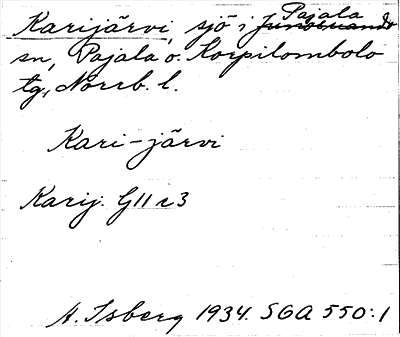 Karijärvi, sjö i Pajala Junosuando
sn, Pajala o. Korpilombolo
tg, Norrb. l.
Kari-järvi
Karij. G11 c3
A. Isberg 1934. SGA 550:1